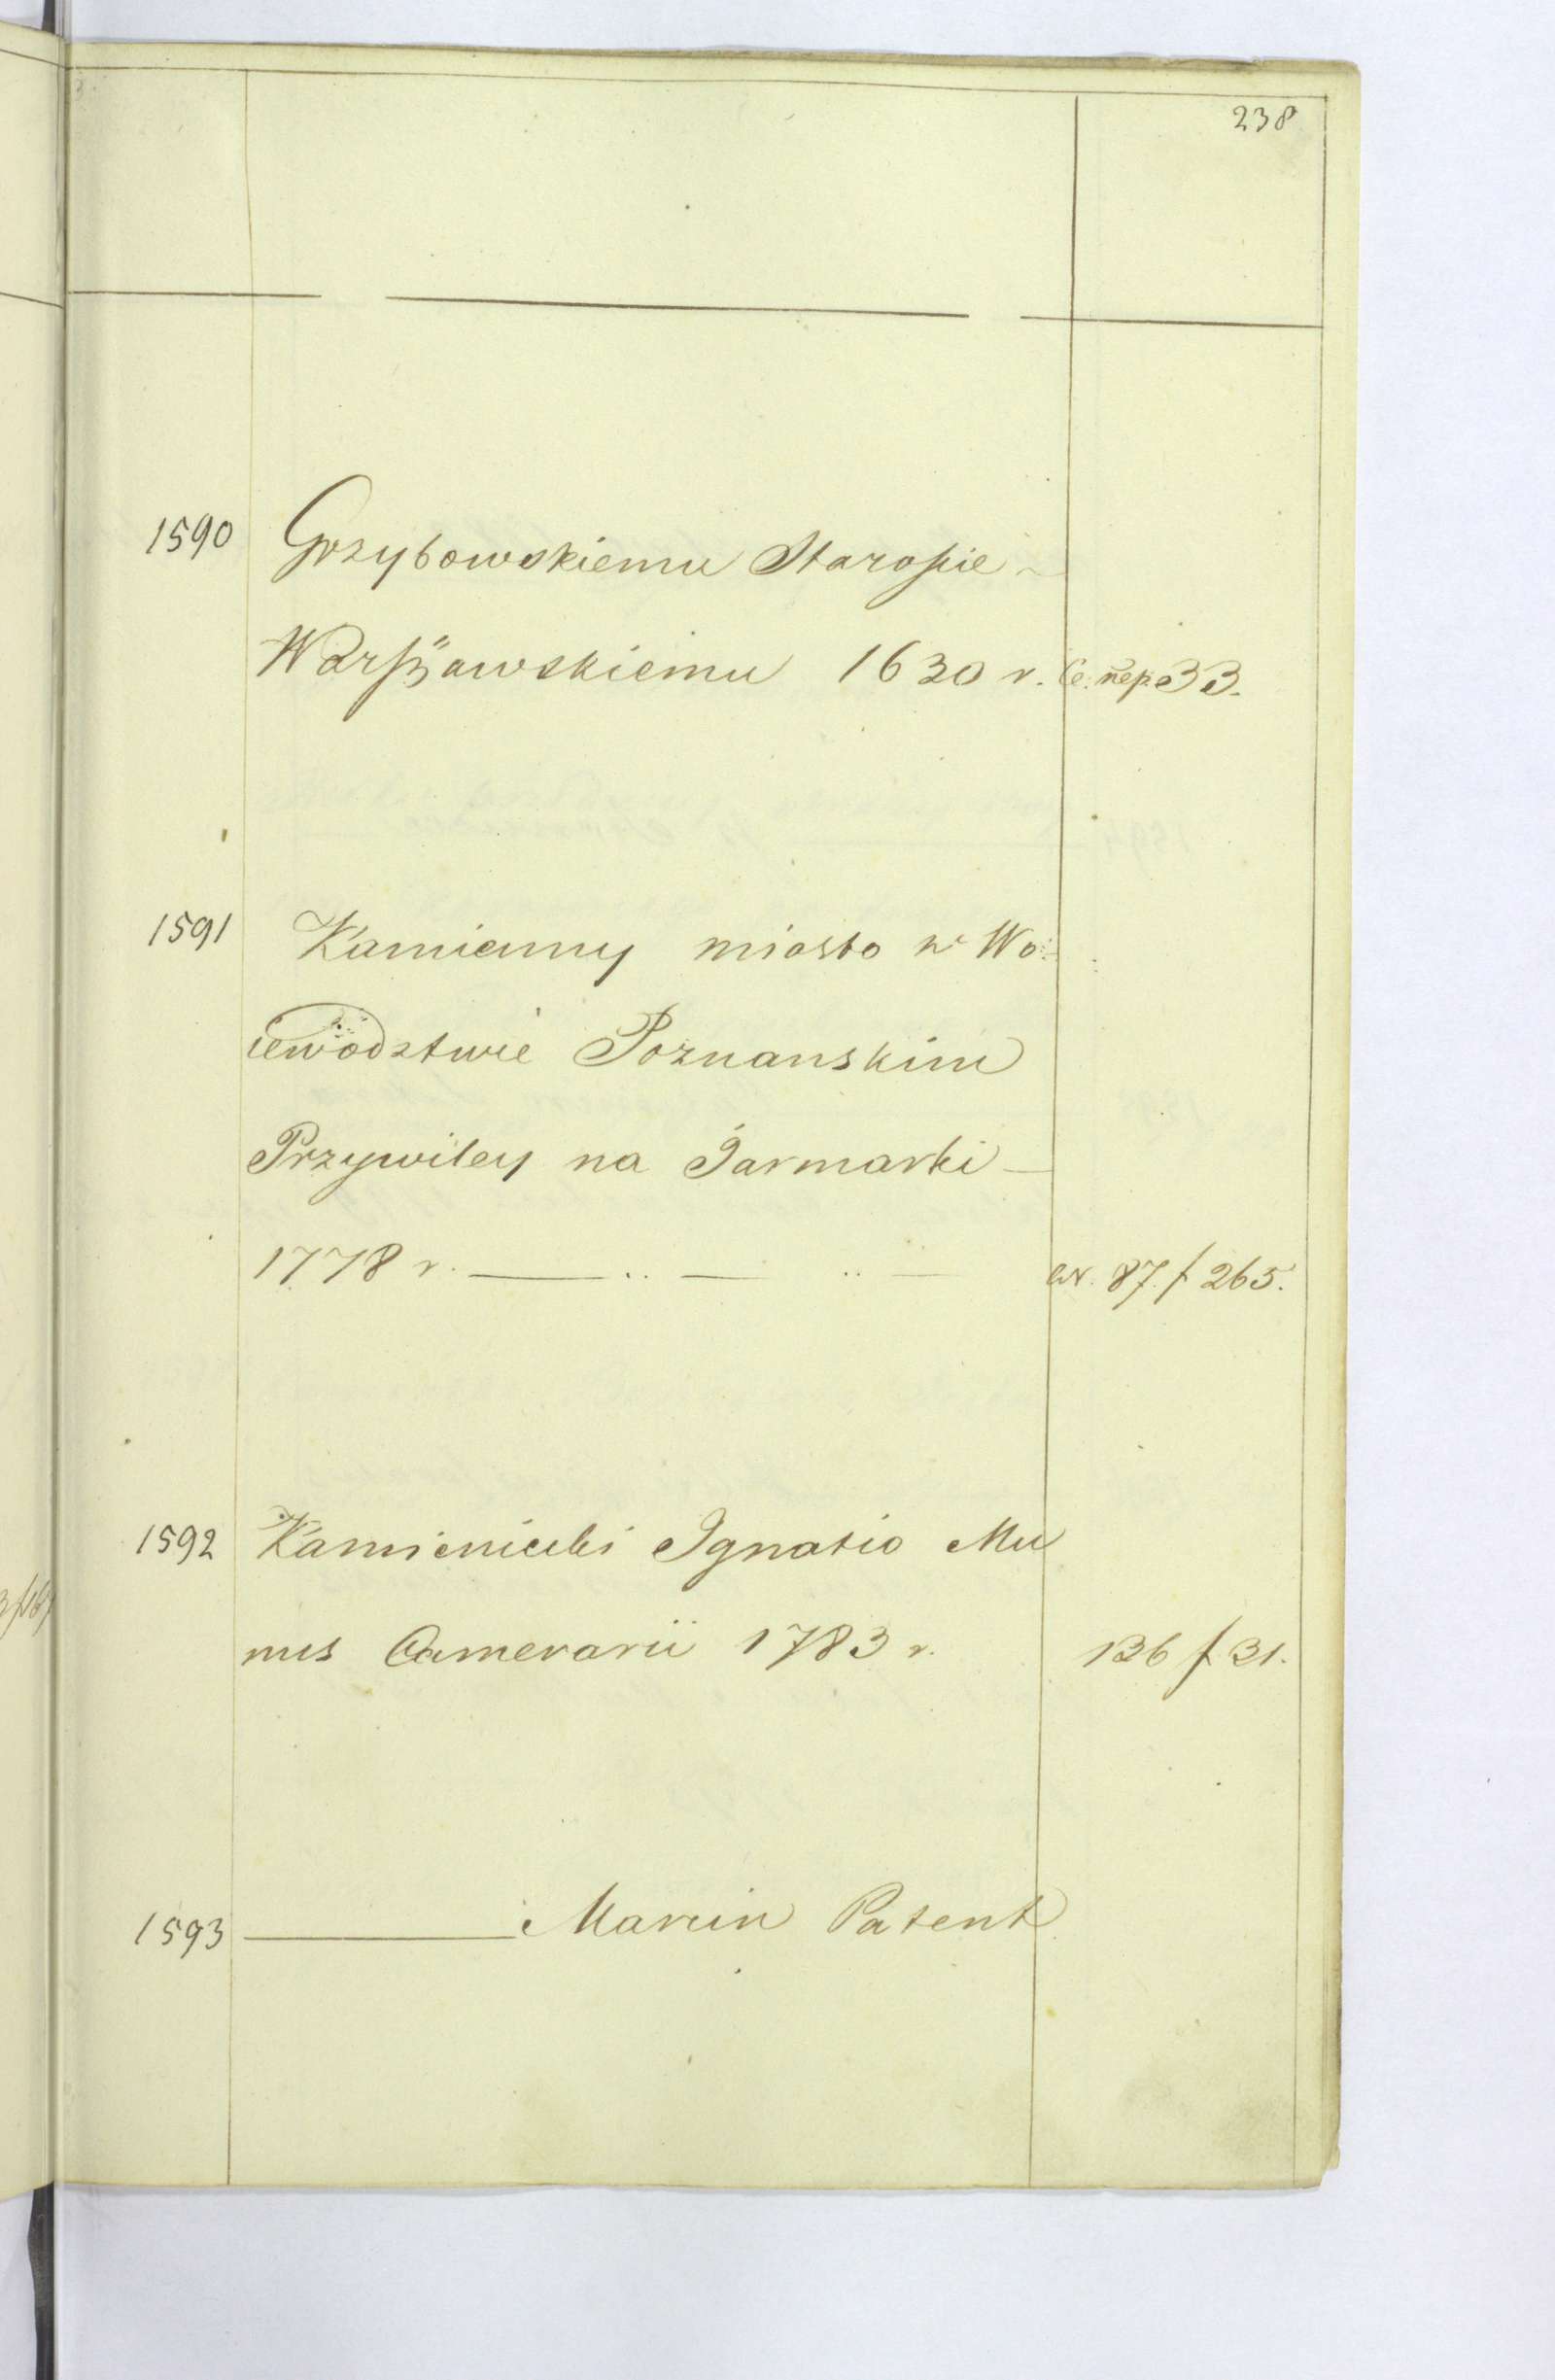 238
1590 Grzybowskiemu Staroście
Warszawskiemu 1630 r. 33.
1591 Kamienny miasto w Wo:
iewodztwie Poznanskim
Przywiley na Jarmarki —
1778 r. — .. — .. — 87. f 265.
1592 Kamienicki Ignatio Mu
nus Camerarii 1783 r. 136 f 31.
1593 — Marcin Patent